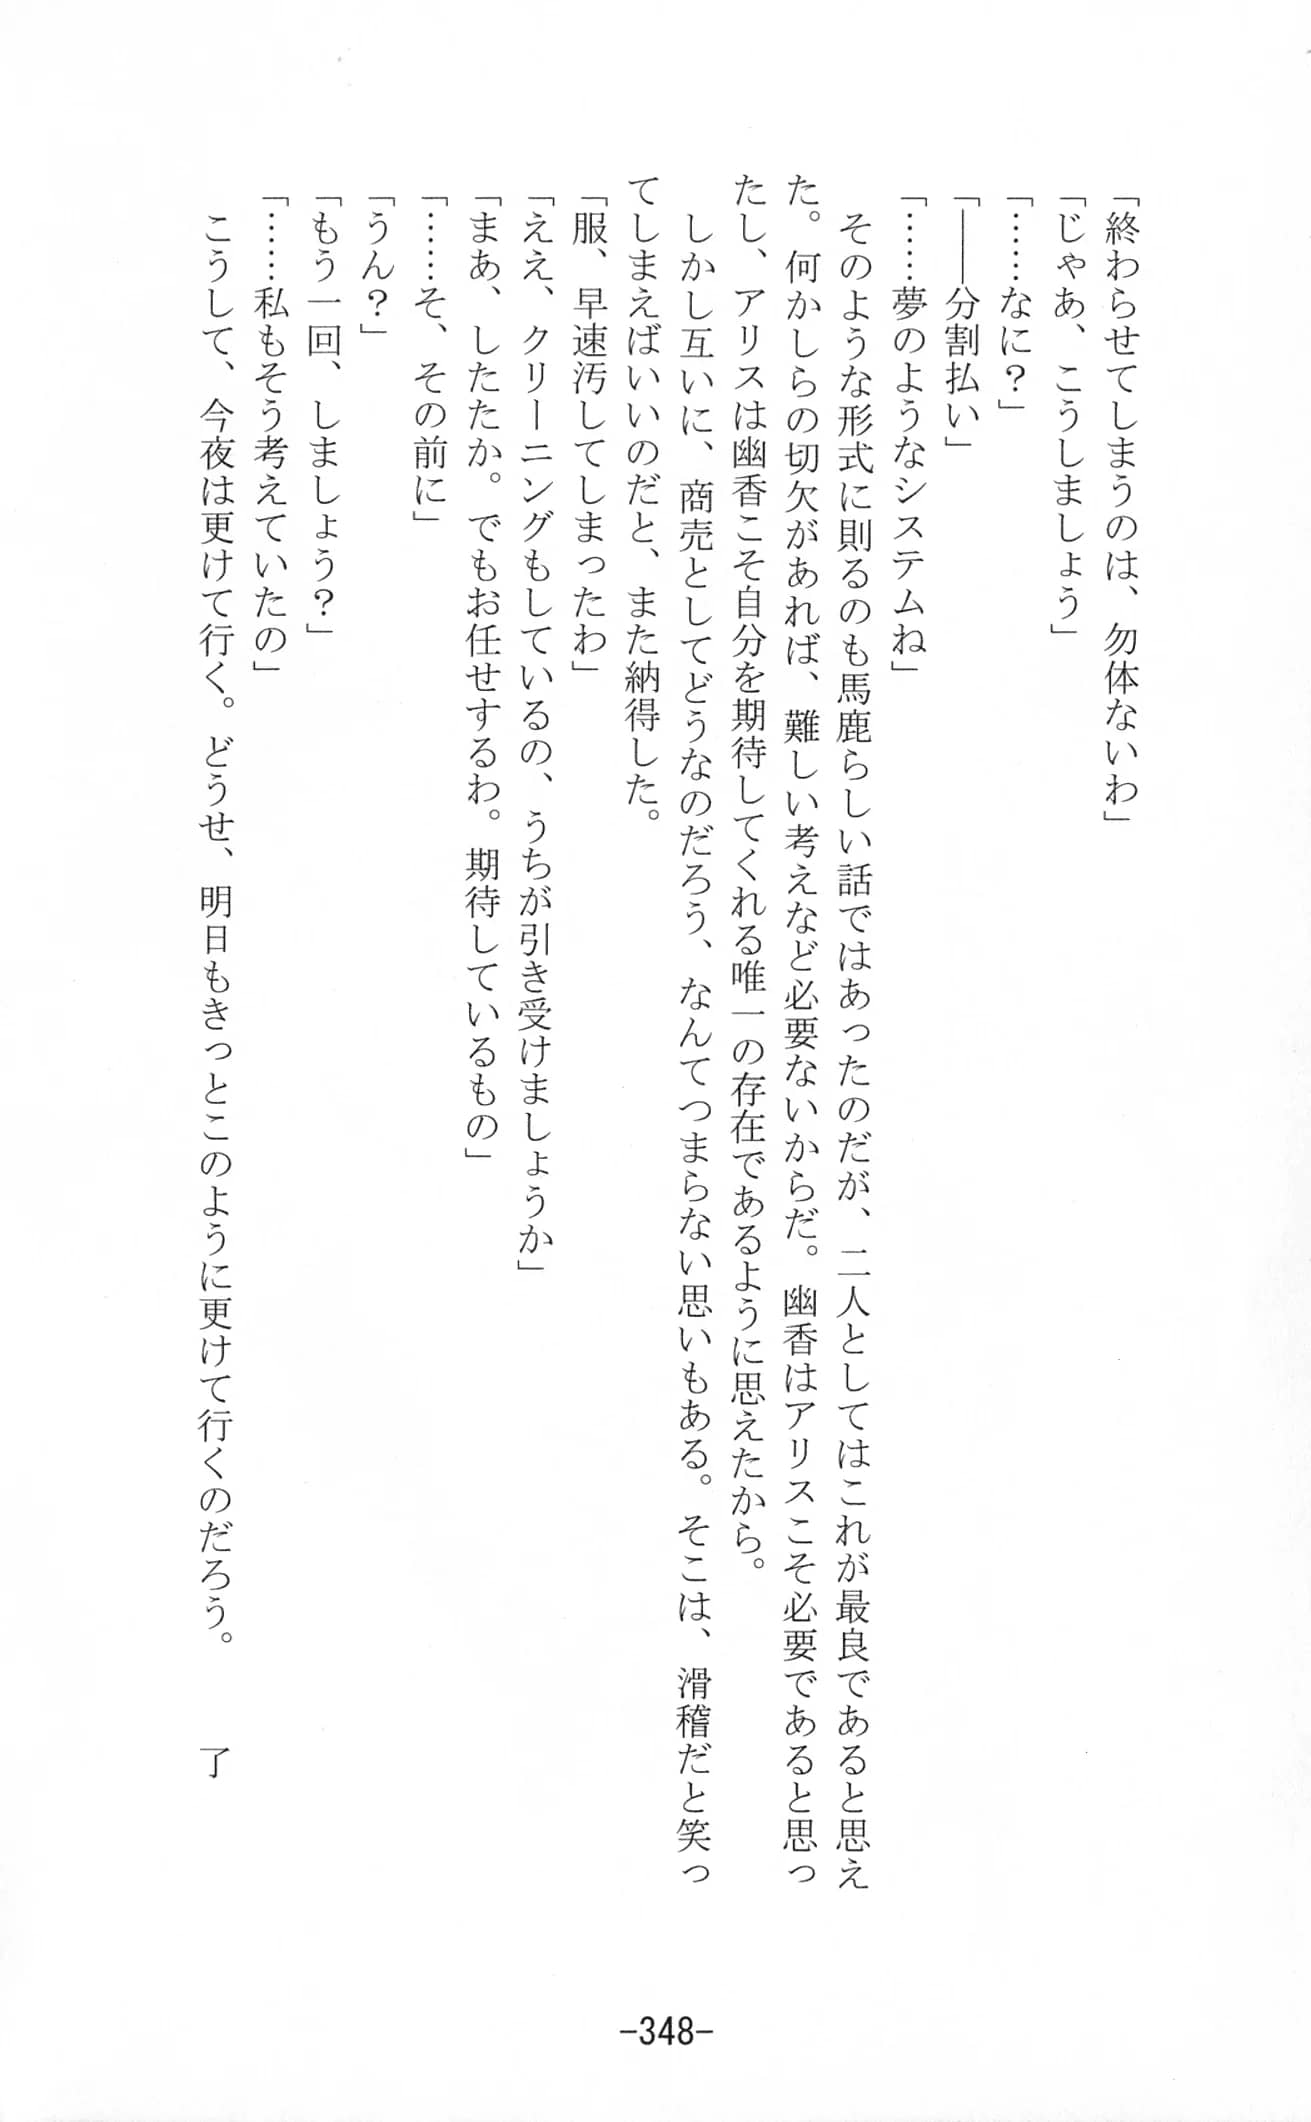 「終わらせてしまうのは、勿体ないわ」
「じゃあ、こうしましょう」
「……なに？」
「――分割払い」
「……夢のようなシステムね」
　そのような形式に則るのも馬鹿らしい話ではあったのだが、二人としてはこれが最良であると思え
た。何かしらの切欠があれば、難しい考えなど必要ないからだ。幽香はアリスこそ必要であると思っ
たし、アリスは幽香こそ自分を期待してくれる唯一の存在であるように思えたから。
　しかし互いに、商売としてどうなのだろう、なんてつまらない思いもある。そこは、滑稽だと笑っ
てしまえばいいのだと、また納得した。
「服、早速汚してしまったわ」
「ええ、クリーニングもしているの、うちが引き受けましょうか」
「まあ、したたか。でもお任せするわ。期待しているもの」
「……そ、その前に」
「うん？」
「もう一回、しましょう？」
「……私もそう考えていたの」
　こうして、今夜は更けて行く。どうせ、明日もきっとこのように更けて行くのだろう。　　了
-348-